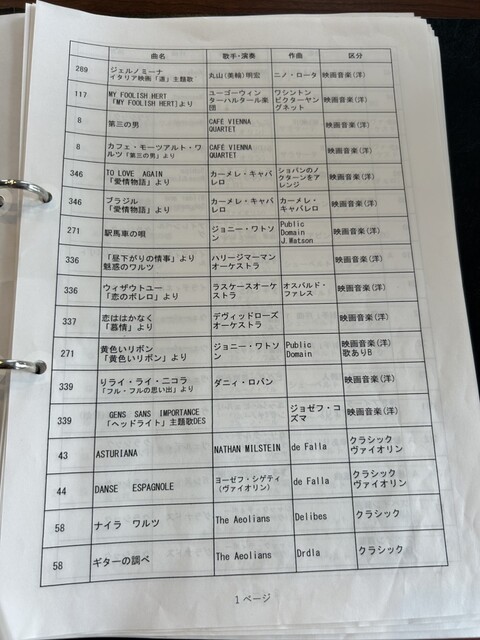 曲名 歌手・演奏 作曲 区分
289 ジェルノミーナ 丸山(美輪)明宏 ニノ・ロータ 映画音楽(洋)
イタリア映画「道」主題歌
117 MY FOOLISH HERT ユーゴーウィン ワシントン 映画音楽(洋)
「MY FOOLISH HERT」より ターハルタール楽 ビクターヤン
団 グネット
8 第三の男 CAFÉ VIENNA 映画音楽(洋)
QUARTET
8 カフェ・モーツアルト・ワ CAFÉ VIENNA 映画音楽(洋)
ルツ「第三の男」より QUARTET
346 TO LOVE AGAIN カーメレ・キャバ ショパンのノ 映画音楽(洋)
「愛情物語」より レロ クターンをア
レンジ
346 ブラジル カーメレ・キャバ カーメレ・ 映画音楽(洋)
「愛情物語」より レロ キャバレロ
271 駅馬車の唄 ジョニー・ワトソ Public 映画音楽(洋)
ン Domain
J.Watson
336 「昼下がりの情事」 ハリージマーマン 映画音楽(洋)
魅惑のワルツ オーケストラ
336 ウィザウトユー ラスケースオーケ オスバルド・ 映画音楽(洋)
「恋のボレロ」より ストラ ファレス
337 恋ははかなく デヴィッドローズ 映画音楽(洋)
「慕情」より オーケストラ
271 黄色いリボン ジョニー・ワトソ Public 映画音楽(洋)
「黄色いリボン」より ン Domain 歌ありB
339 りライ・ライ・ニコラ ダニィ・ロバン 映画音楽(洋)
「フル・フルの思い出」より
339 GENS SANS IMPORTANCE ジョゼフ・コ 映画音楽(洋)
「ヘッドライト」主題歌DES ズマ
43 ASTURIANA NATHAN MILSTEIN de Falla クラシック
ヴァイオリン
44 DANSE ESPAGNOLE ヨーゼフ・シゲティ de Falla クラシック
(ヴァイオリン) ヴァイオリン
58 ナイラ ワルツ The Aeolians Delibes クラシック
58 ギターの調べ The Aeolians Drdla クラシック
1ページ